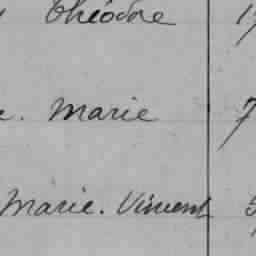 Théodore
Marie 7
Marie. Vincent